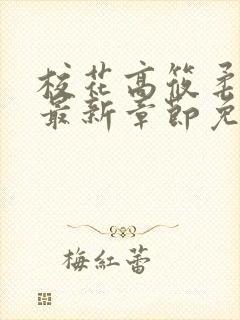 校花高筱柔
最新章節免
梅紅蕾